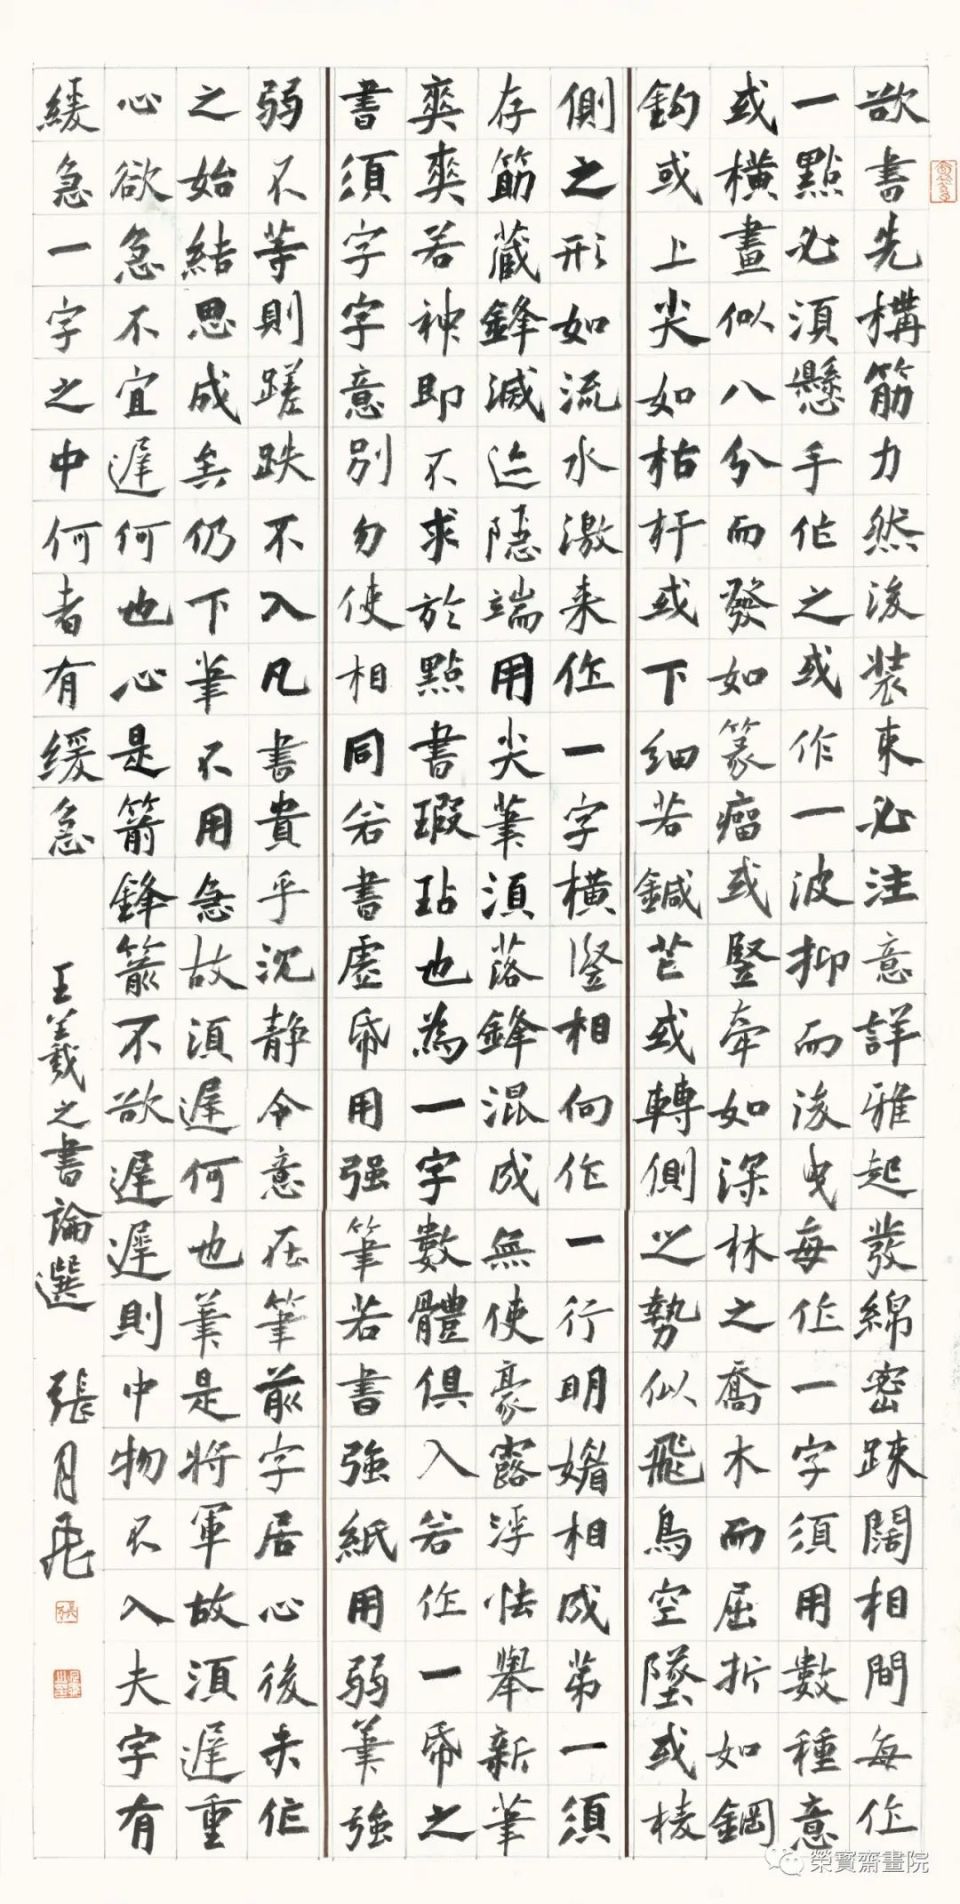 欲書先構筋力然後装束必注意詳雅起發綿密踈闊相間每作
一點必須懸手作之或作一波抑而後曳每作一字須用數種意
或橫畫似八分而發如篆瘤或竪牽如深林之喬木而屈折如鋼
鈎或上尖如枯杆或下細若鍼芒或轉側之勢似飛鳥空墜或棱
側之形如流水激来作一字橫竪相向作一行明媚相成第一須
存筯藏鋒滅迹隱端用尖筆須落鋒混成無使豪露浮怯舉新筆
爽爽若神即不求於點書瑕玷也為一字數體俱入若作一帋之
書須字字意別勿使相同若書虛帋用强筆若書強紙用弱筆強
弱不等則蹉跌不入凡書貴乎沉静令意在筆前字居心後未作
之始結思成矣仍下筆不用急故須遲何也筆是將軍故須遲重
心欲急不宜遲何也心是箭鋒箭不欲遲遲則中物不入夫字有
緩急一字之中何者有緩急 王羲之書論選 張月飛
張
榮寶齋畫院